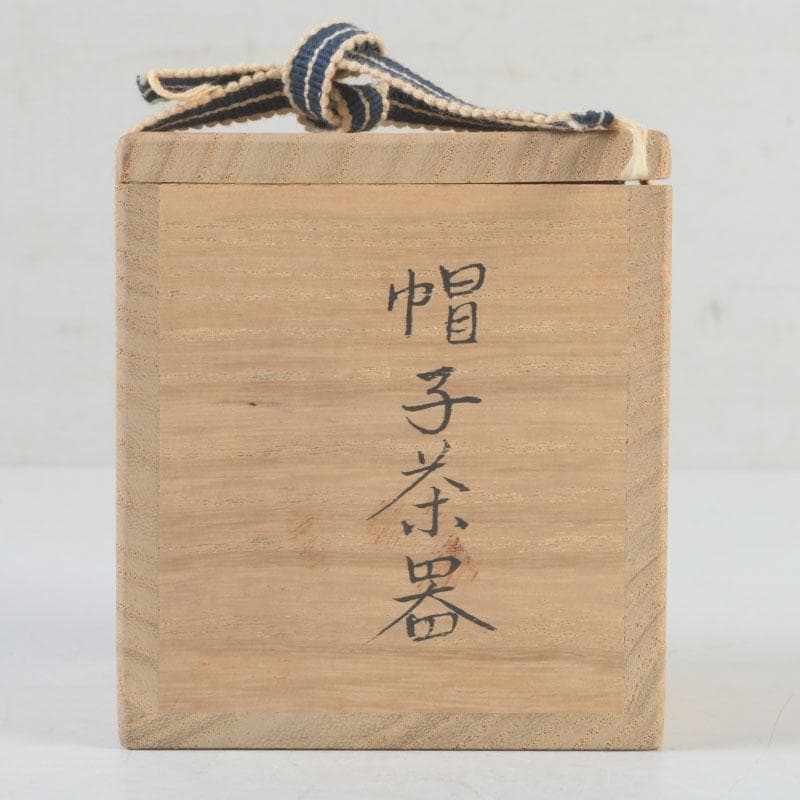 帽子茶器